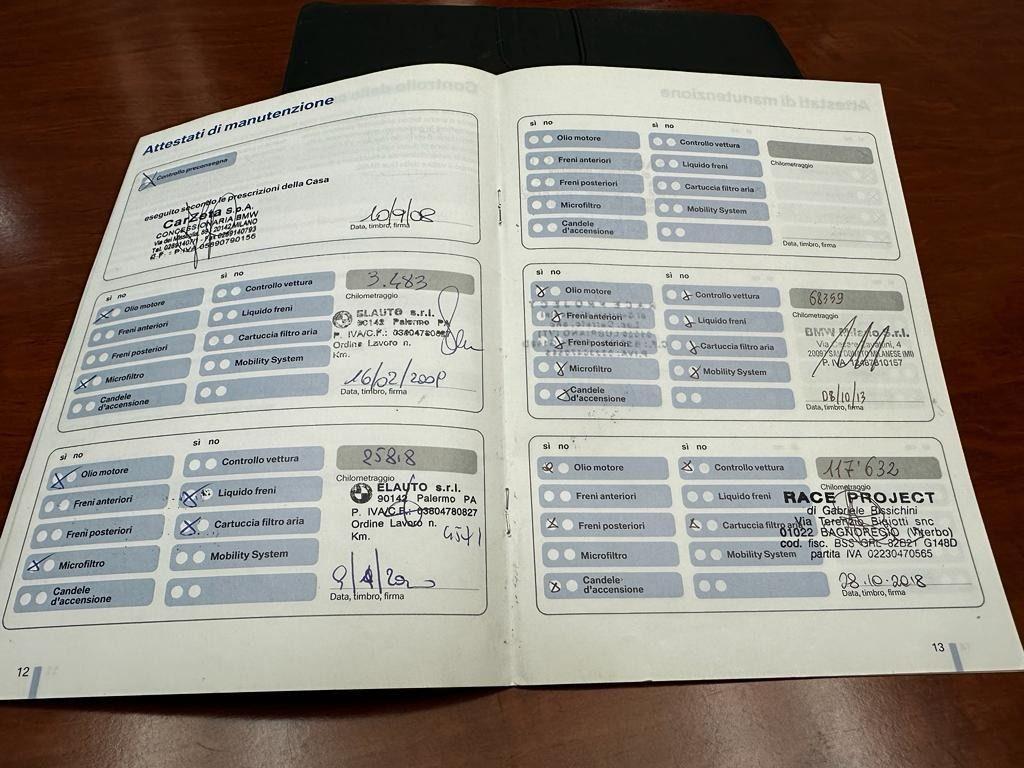 Attestati di manutenzione
Controllo preconsegna
eseguito secondo le prescrizioni della Casa
CarZeta s.p.A.
CONCESSIONARIA BMW
20142 MILANO
10/9/08
Data, timbro, firma
sì no
sì no
3.483
Olio motore
Controllo vettura
Chilometraggio
Freni anteriori
Liquido freni
ELAUTO s.r.l.
90142 Palermo PA
Freni posteriori
Cartuccia filtro aria
P. IVA/C.F.: 03804780827
Ordine Lavoro n.
Km.
Microfiltro
Mobility System
16/02/2009
Candele
d'accensione
Data, timbro, firma
sì no
sì no
25818
Olio motore
Controllo vettura
Chilometraggio
Freni anteriori
Liquido freni
ELAUTO s.r.l.
90142 Palermo PA
Freni posteriori
Cartuccia filtro aria
P. IVA/C.F.: 03804780827
Ordine Lavoro n.
Km.
Microfiltro
Mobility System
Candele
d'accensione
Data, timbro, firma
12
sì no
sì no
Olio motore
Controllo vettura
Freni anteriori
Liquido freni
Chilometraggio
Freni posteriori
Cartuccia filtro aria
Microfiltro
Mobility System
Candele
d'accensione
Data, timbro, firma
sì no
sì no
68399
Olio motore
Controllo vettura
Chilometraggio
Freni anteriori
Liquido freni
BMW Milano S.r.l.
Freni posteriori
Cartuccia filtro aria
20097 SAN DONATO MILANESE (MI)
P. IVA 12467810157
Microfiltro
Mobility System
08/10/13
Candele
d'accensione
Data, timbro, firma
sì no
sì no
117'632
Olio motore
Controllo vettura
Chilometraggio
Freni anteriori
Liquido freni
RACE PROJECT
di Gabriele Bissichini
Freni posteriori
Cartuccia filtro aria
Via Terenzio Bigiotti snc
01022 BAGNOREGIO (Viterbo)
cod. fisc. BSS GRL 82B21 G148D
Microfiltro
Mobility System
partita IVA 02230470565
Candele
d'accensione
28.10.2018
Data, timbro, firma
13